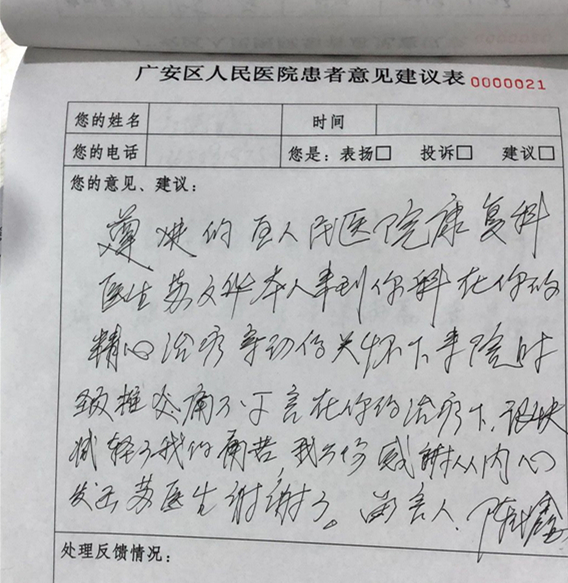 广安区人民医院患者意见建议表 0000021
您的姓名 时间
您的电话 您是：表扬□ 投诉□ 建议□
您的意见、建议：
尊 的区人民医院康复科
医生苏文 本人来到你科在你的
精心治疗 关怀下来院时
颈椎 痛不 言在你的治疗下，很快
减轻了我的痛苦 我 感谢从内心
发 苏医生谢谢了。留言人．陈 鑫
处理反馈情况：